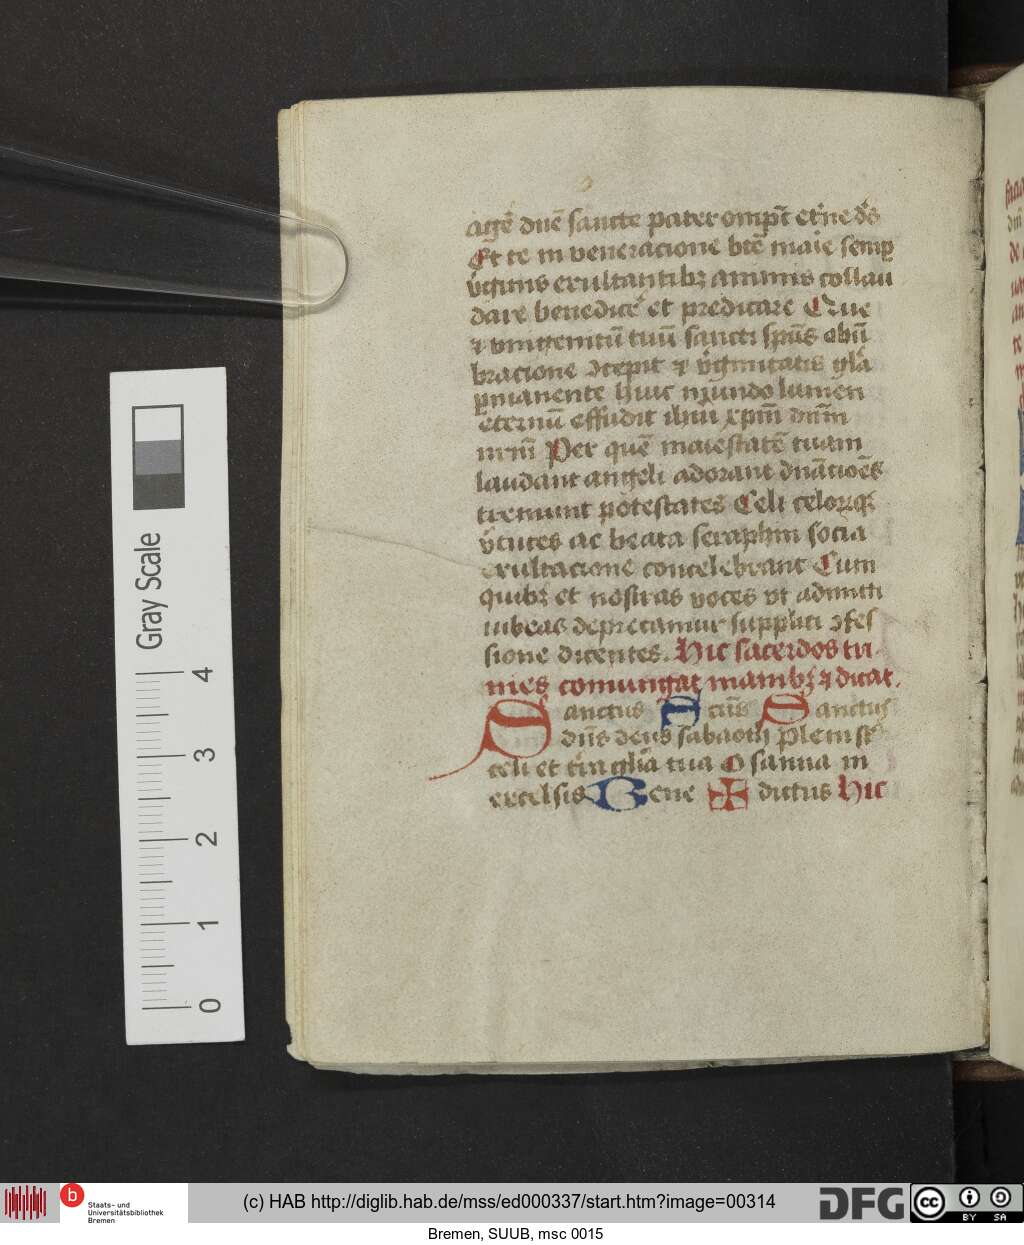 agē dnē sancte pater omp̄t et̄ne ds̄
Et te in veneracione btē maīe semp̄
v̄ginis exultantibꝫ animis collau
dare benedicē et predicare Que
⁊ vnigenitū tuū sancti spūs obū
bracione ↄcepit ⁊ v̄ginitatis glā
ꝑmanente huic mundo lumen
eternū effudit ihm̄ xp̄m dnm̄
nrm̄ Per quē maiestatē tuam
laudant angeli adorant dn̄acioēs
tremunt potestates Celi celorꝫqꝫ
v̄tutes ac beata seraphin socia
exultacione concelebrant Cum
quibꝫ et nostras voces vt admitti
iubeas deprecamur supplici ↄfes
sione dicentes. Hic sacerdos in
manibꝫ ⁊ dicat.
Sanctus Sanctus
dn̄s deus sabaoth Pleni st̄
celi et tr̄a gl̄ia tua O sanna in
excelsis Bene ✠ dictus Hic
Gray Scale
4
3
2
1
0
b
Staats- und
Universitätsbibliothek
Bremen
(c) HAB http://diglib.hab.de/mss/ed000337/start.htm?image=00314
DFG
cc
BY SA
Bremen, SUUB, msc 0015